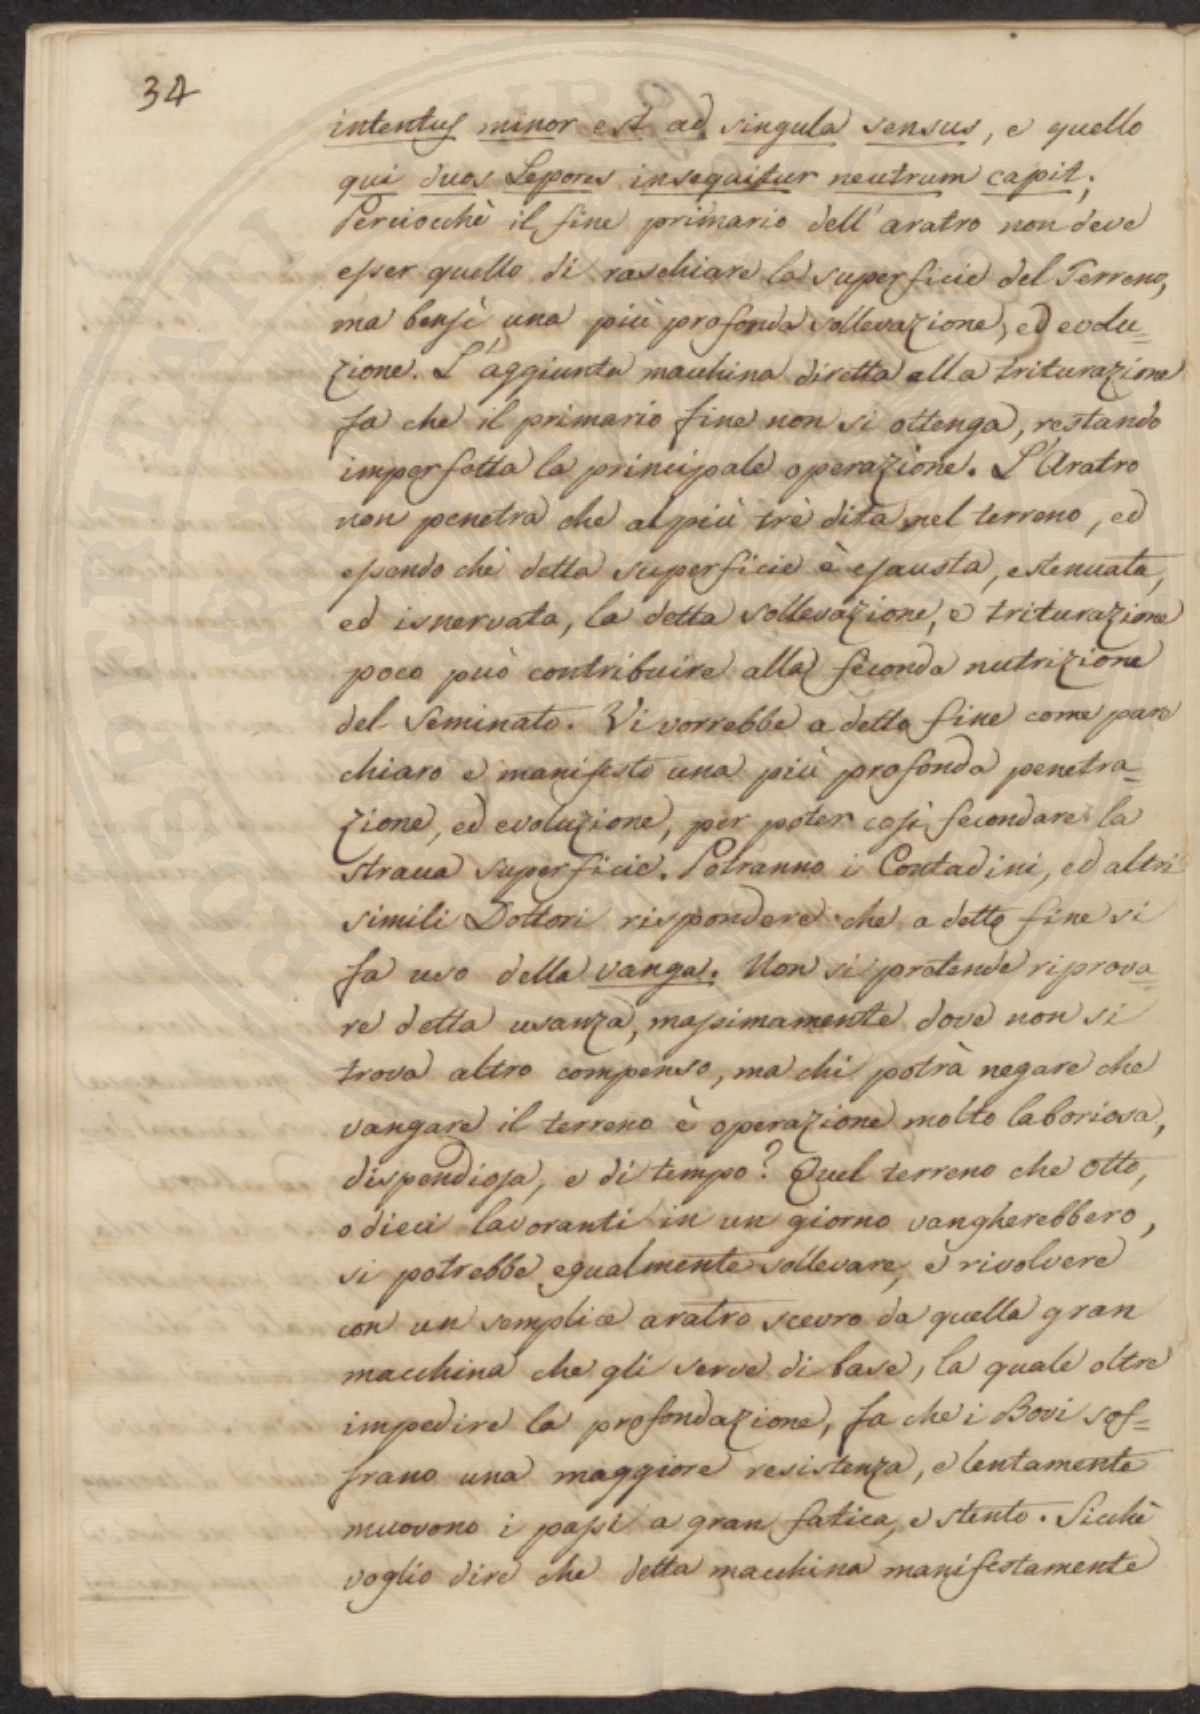 34
intentus minor est ad singula sensus, e quello
qui duos Lepores insequitur neutrum capit;
Perciocchè il fine primario dell'aratro non deve
esser quello di raschiare la superficie del Terreno,
ma bensì una più profonda sollevazione, ed evolu=
zione. L'aggiunta macchina diretta alla triturazione
fa che il primario fine non si ottenga, restando
imperfetta la principale operazione. L'Aratro
non penetra che al più trè dita nel terreno, ed
essendo chè detta superficie è esausta, estenuata,
ed isnervata, la detta sollevazione, e triturazione
poco può contribuire alla feconda nutrizione
del Seminato. Vi vorrebbe a detto fine come pare
chiaro e manifesto una più profonda penetra=
zione, ed evoluzione, per poter così fecondare la
stracca superficie. Potranno i Contadini, ed altri
simili Dottori rispondere che a detto fine si
fa uso della vanga. Non si pretende riprova=
re detta usanza, massimamente dove non si
trova altro compenso, ma chi potrà negare che
vangare il terreno è operazione molto laboriosa,
dispendiosa, e di tempo? Quel terreno che otto,
o dieci lavoranti in un giorno vangherebbero,
si potrebbe egualmente sollevare, e rivolvere
con un semplice aratro scevro da quella gran
macchina che gli serve di base, la quale oltre
impedire la profondazione, fa che i Bovi sof=
frano una maggiore resistenza, e lentamente
muovono i passi a gran fatica, e stento. Sicchè
voglio dire che detta macchina manifestamente